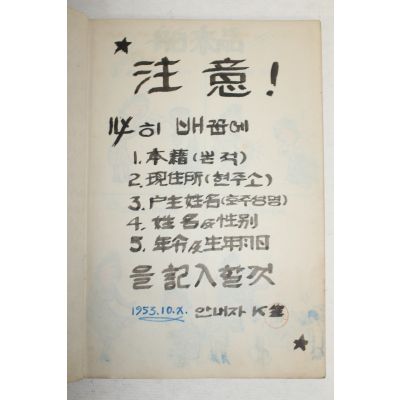 注意!
必히 배꼽에
1. 本籍(본적)
2. 現住所(현주소)
3. 户主姓名(호주성명)
4. 姓名及性别
5. 年令及生年月日
을 記入할것
1953.10.X. 안내자 K生